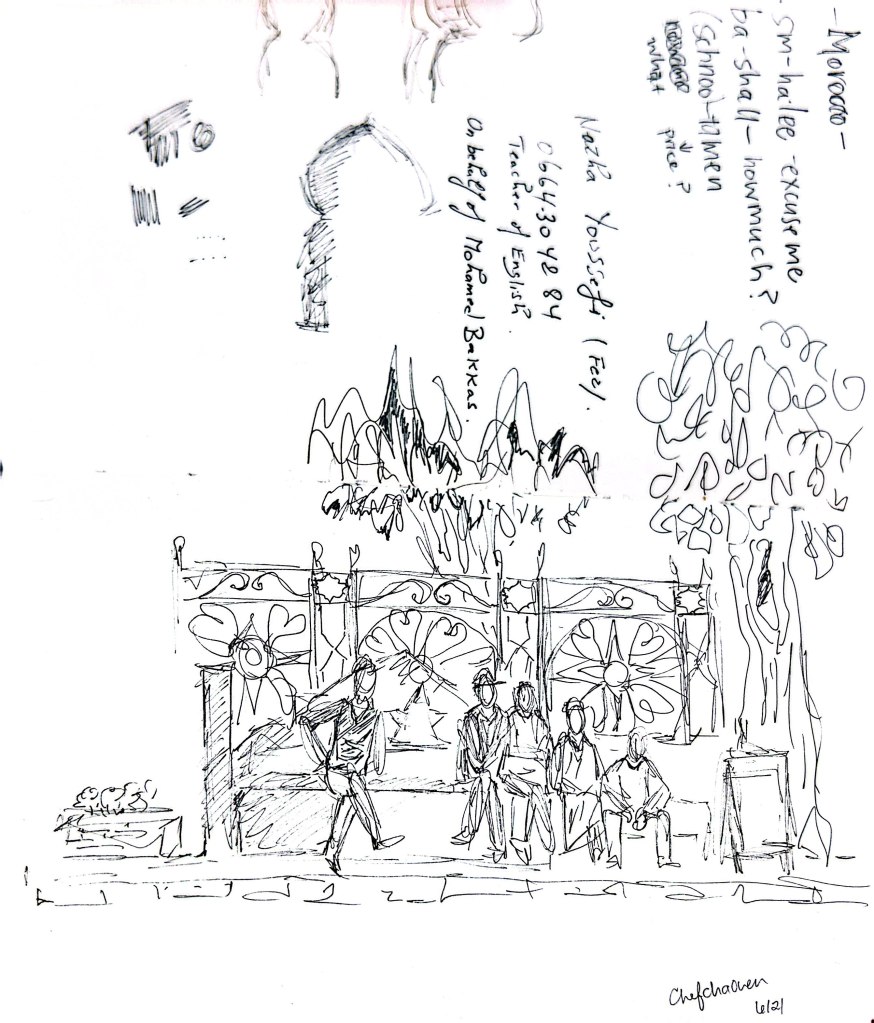 - Morocco -
- sm-halee - excuse me
ba-shall - howmuch?
(schnoo-tamen
what price?
Nazha Youssefi (Fez).
0664.30 42 84
Teacher of English.
On behalf of Mohamed Bakkas.
Chefchaouen
6/21